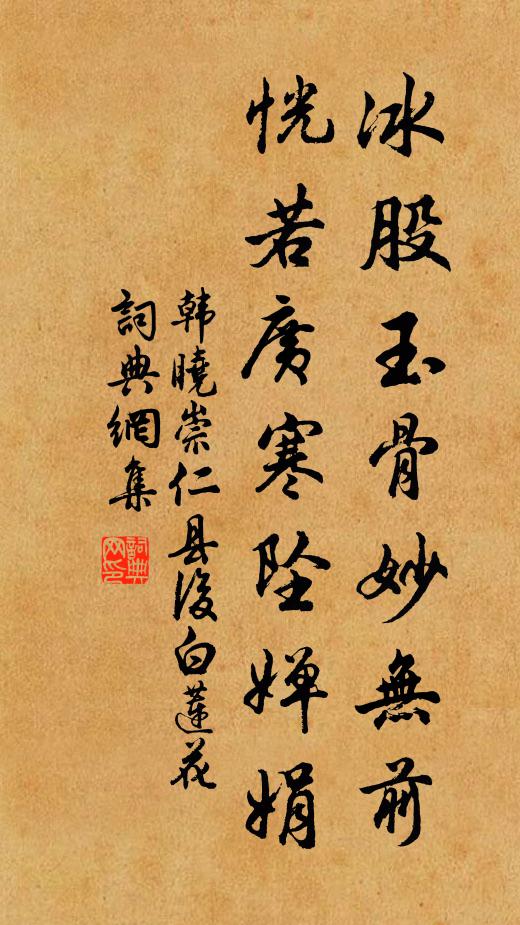 冰股玉骨妙無前
恍若廣寒墜嬋娟
韩曉崇仁县後白蓮花
詞典網集
詞典网印